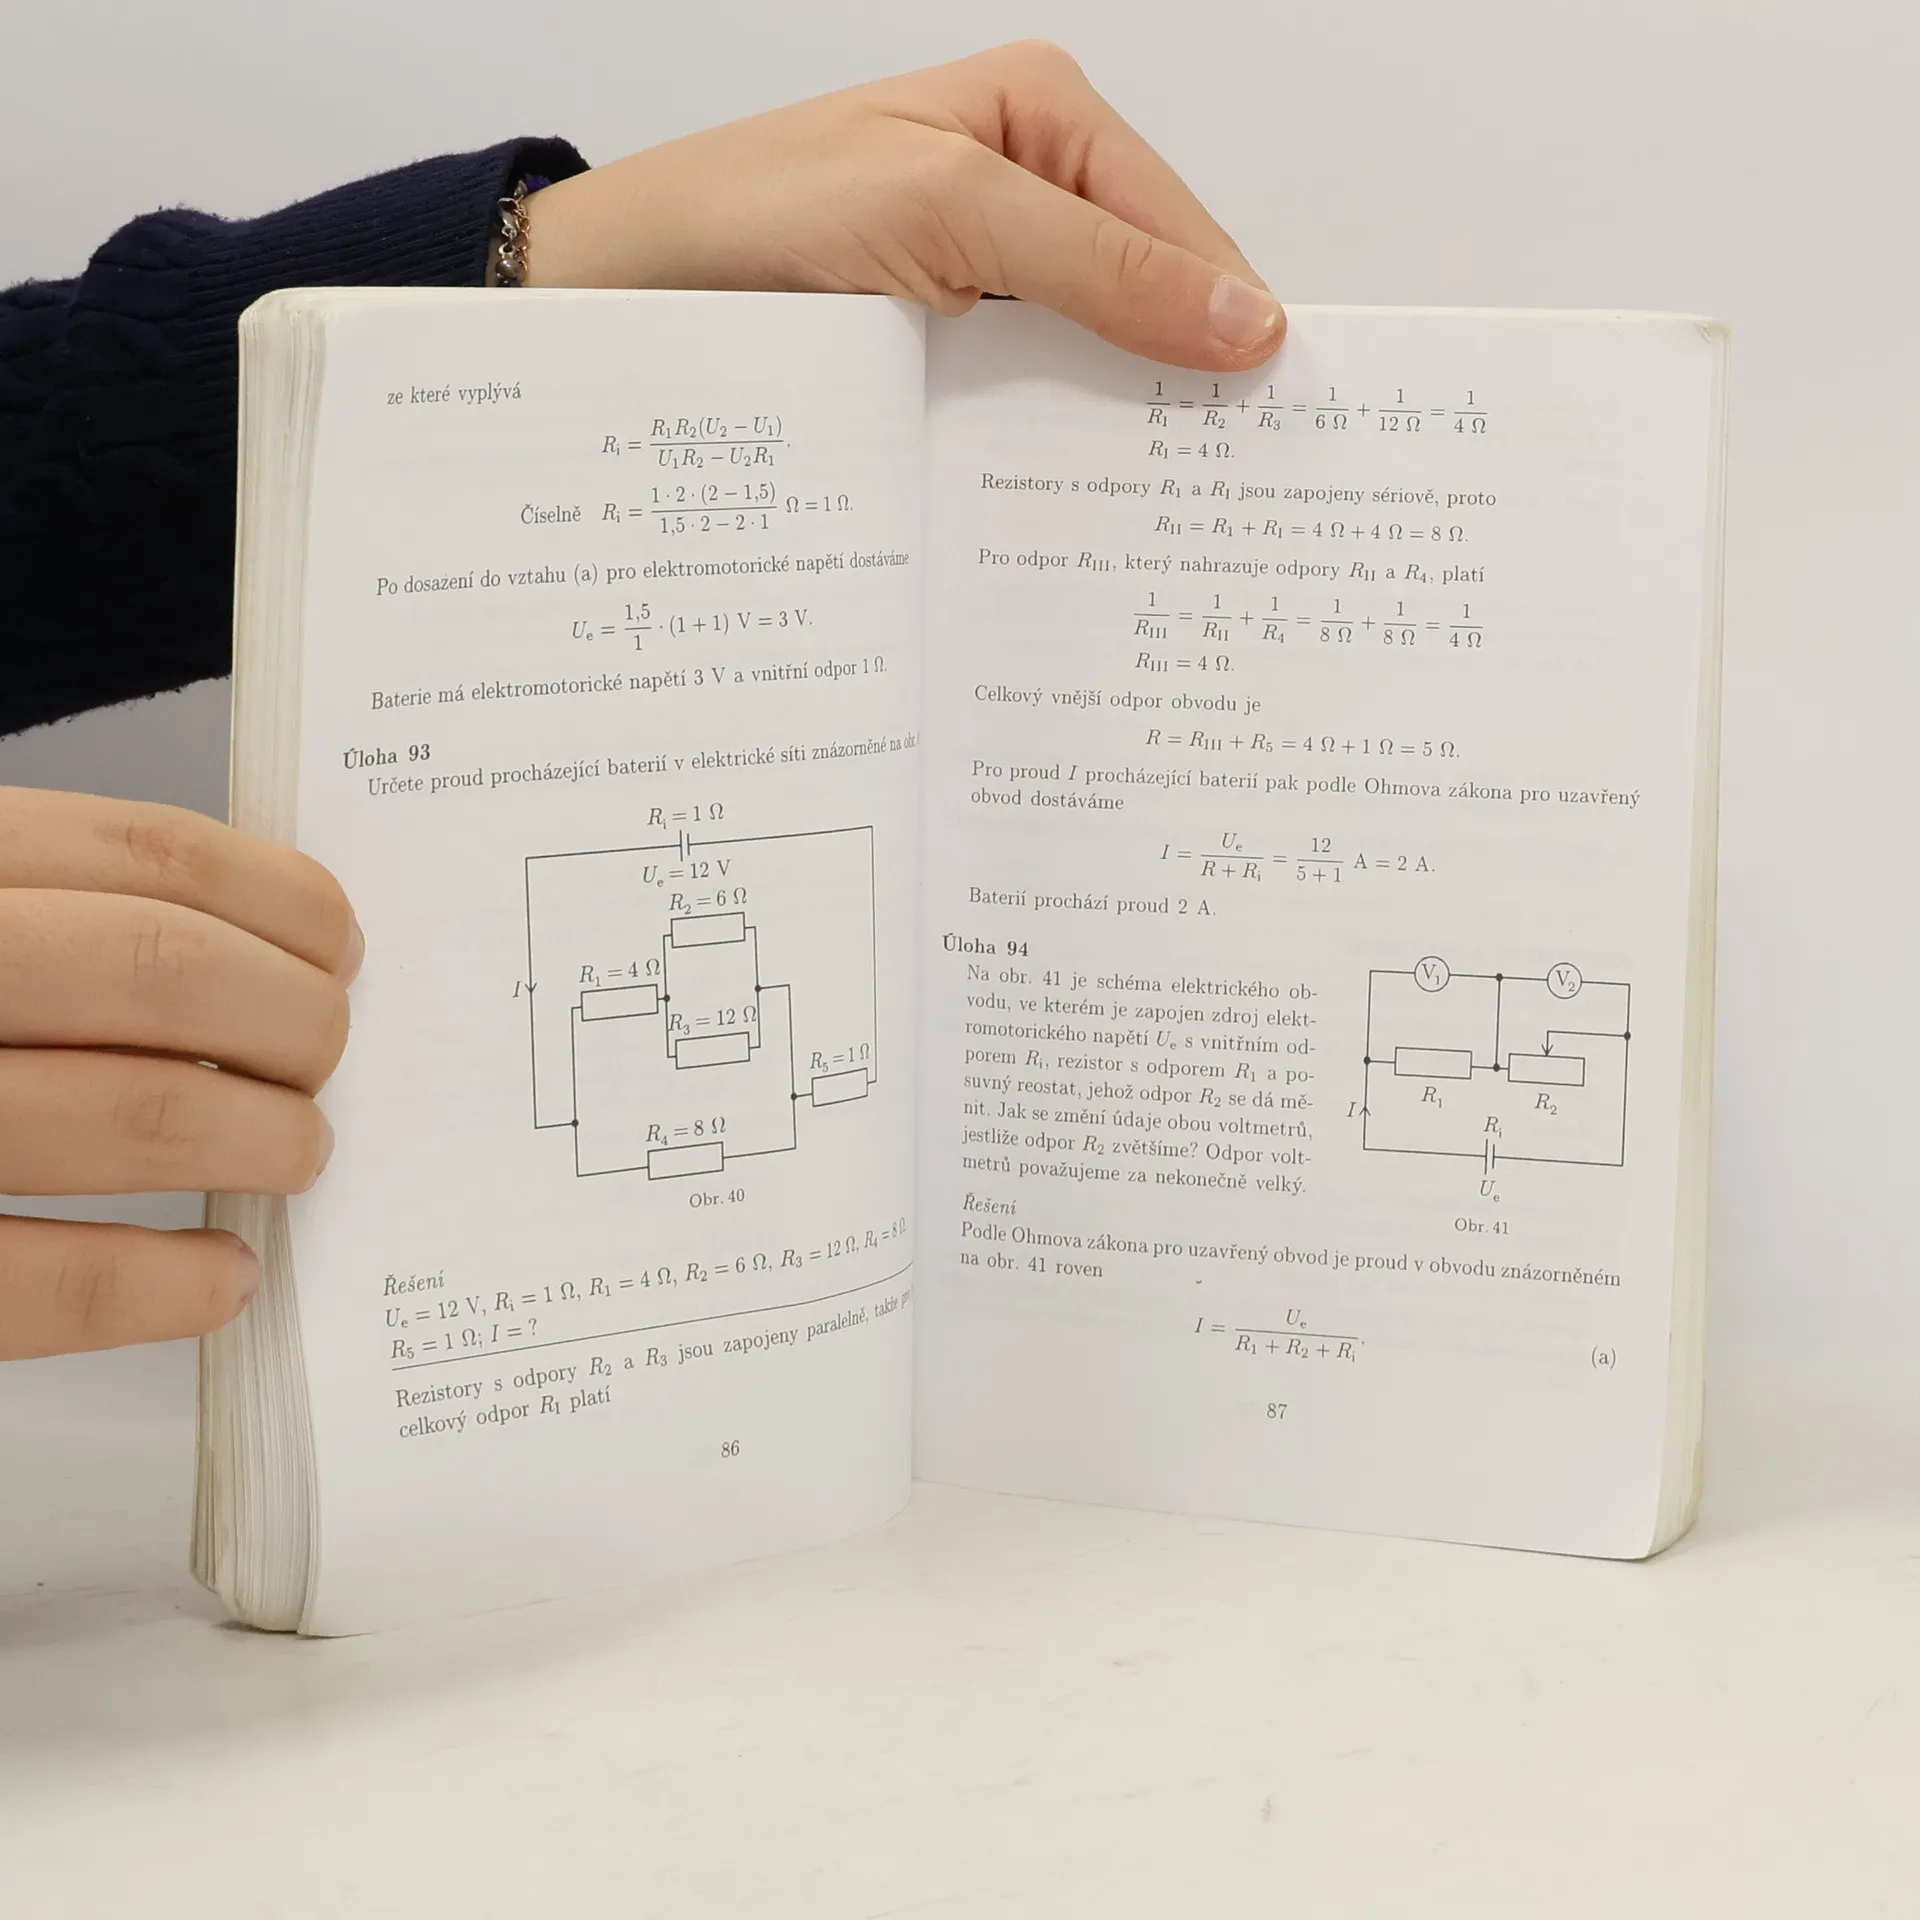 ze které vyplývá
R_i = \frac{R_1 R_2 (U_2 − U_1)}{U_1 R_2 − U_2 R_1}.
Číselně R_i = \frac{1 · 2 · (2 − 1,5)}{1,5 · 2 − 2 · 1} Ω = 1 Ω.
Po dosazení do vztahu (a) pro elektromotorické napětí dostáváme
U_e = \frac{1,5}{1} · (1 + 1) V = 3 V.
Baterie má elektromotorické napětí 3 V a vnitřní odpor 1 Ω.
Úloha 93
Určete proud procházející baterií v elektrické síti znázorněné na obr.
R_i = 1 Ω
U_e = 12 V
R_2 = 6 Ω
R_1 = 4 Ω
I
R_3 = 12 Ω
R_5 = 1 Ω
R_4 = 8 Ω
Obr. 40
Řešení
U_e = 12 V, R_i = 1 Ω, R_1 = 4 Ω, R_2 = 6 Ω, R_3 = 12 Ω, R_4 = 8 Ω
R_5 = 1 Ω; I = ?
Rezistory s odpory R_2 a R_3 jsou zapojeny paralelně, takže
celkový odpor R_I platí
86
\frac{1}{R_I} = \frac{1}{R_2} + \frac{1}{R_3} = \frac{1}{6 Ω} + \frac{1}{12 Ω} = \frac{1}{4 Ω}
R_I = 4 Ω.
Rezistory s odpory R_1 a R_I jsou zapojeny sériově, proto
R_II = R_1 + R_I = 4 Ω + 4 Ω = 8 Ω.
Pro odpor R_III, který nahrazuje odpory R_II a R_4, platí
\frac{1}{R_III} = \frac{1}{R_II} + \frac{1}{R_4} = \frac{1}{8 Ω} + \frac{1}{8 Ω} = \frac{1}{4 Ω}
R_III = 4 Ω.
Celkový vnější odpor obvodu je
R = R_III + R_5 = 4 Ω + 1 Ω = 5 Ω.
Pro proud I procházející baterií pak podle Ohmova zákona pro uzavřený
obvod dostáváme
I = \frac{U_e}{R + R_i} = \frac{12}{5 + 1} A = 2 A.
Baterií prochází proud 2 A.
Úloha 94
Na obr. 41 je schéma elektrického ob-
vodu, ve kterém je zapojen zdroj elekt-
romotorického napětí U_e s vnitřním od-
porem R_i, rezistor s odporem R_1 a po-
suvný reostat, jehož odpor R_2 se dá mě-
nit. Jak se změní údaje obou voltmetrů,
jestliže odpor R_2 zvětšíme? Odpor volt-
metrů považujeme za nekonečně velký.
V_1 V_2
R_1 R_2
I
R_i
U_e
Obr. 41
Řešení
Podle Ohmova zákona pro uzavřený obvod je proud v obvodu znázorněném
na obr. 41 roven
I = \frac{U_e}{R_1 + R_2 + R_i}. (a)
87